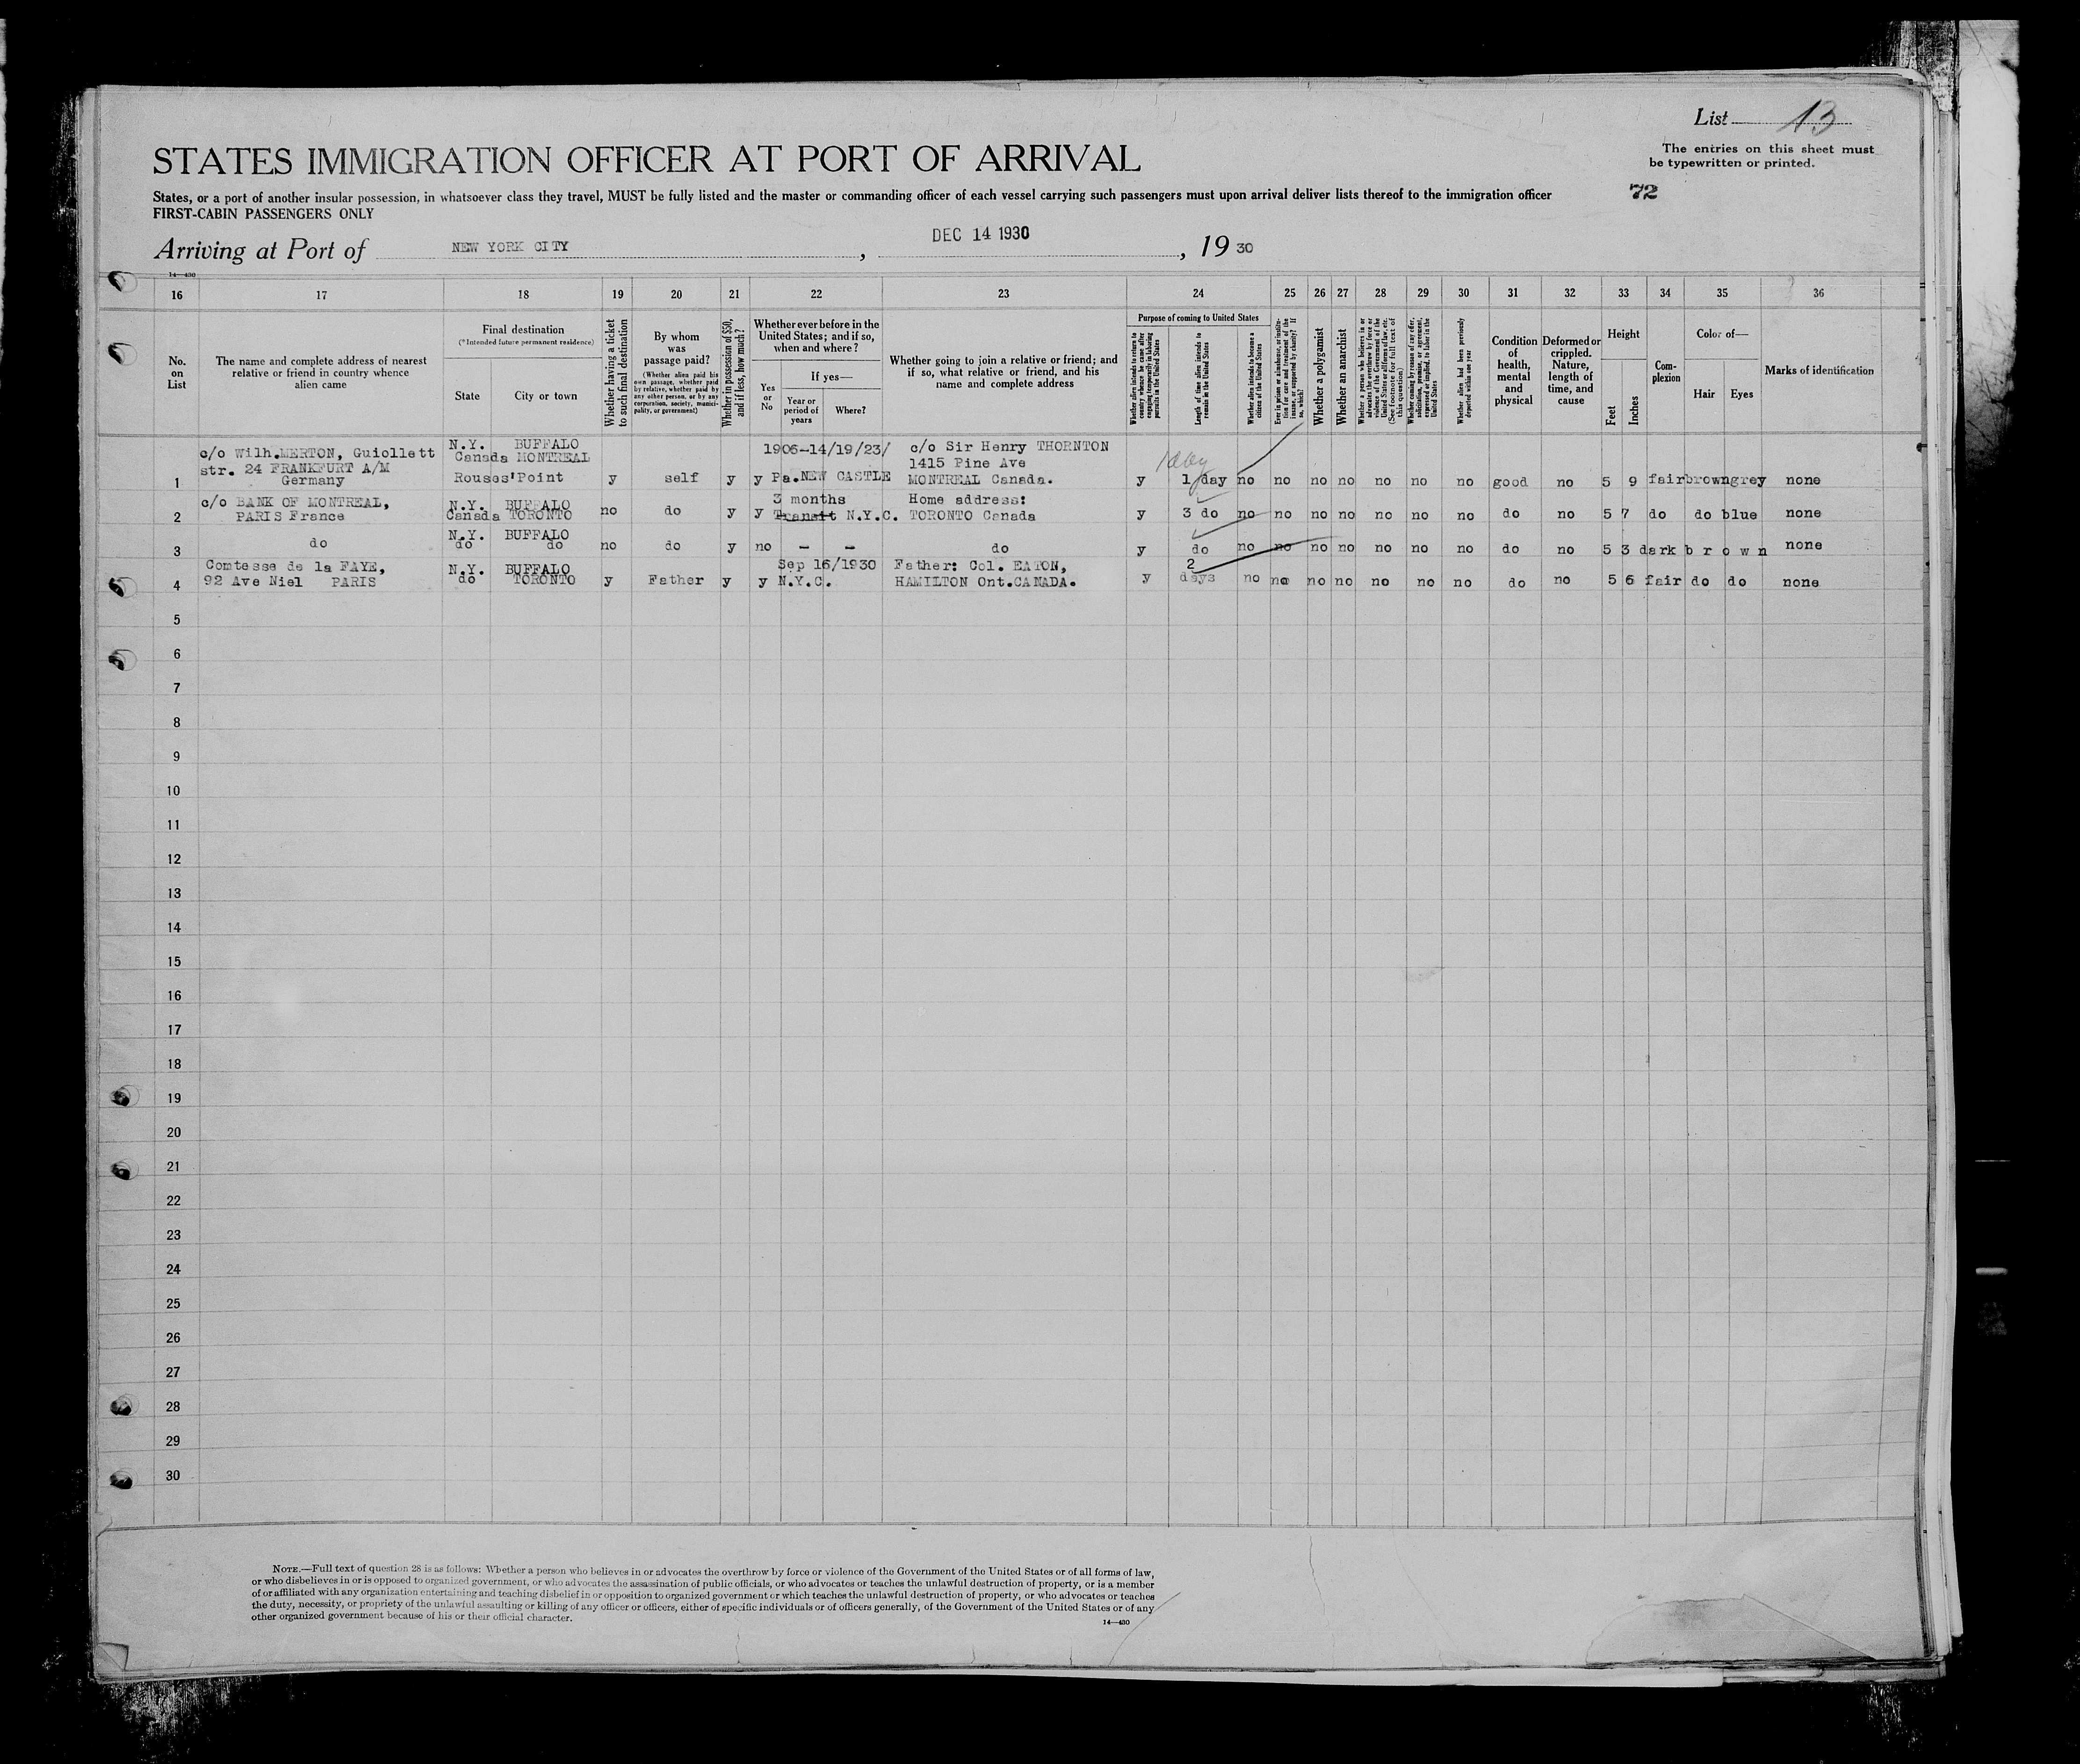 List 13
STATES IMMIGRATION OFFICER AT PORT OF ARRIVAL
The entries on this sheet must
be typewritten or printed.
States, or a port of another insular possession, in whatsoever class they travel, MUST be fully listed and the master or commanding officer of each vessel carrying such passengers must upon arrival deliver lists thereof to the immigration officer
72
FIRST-CABIN PASSENGERS ONLY
Arriving at Port of NEW YORK CITY, DEC 14 1930, 1930
14—430
16 17 18 19 20 21 22 23 24 25 26 27 28 29 30 31 32 33 34 35 36
No. on List
The name and complete address of nearest relative or friend in country whence alien came
Final destination
(*Intended future permanent residence)
State
City or town
Whether having a ticket to such final destination
By whom was passage paid?
(Whether alien paid his own passage, whether paid by relative, whether paid by any other person, or by any corporation, society, municipality, or government)
Whether in possession of $50, and if less, how much?
Whether ever before in the United States; and if so, when and where?
Yes or No
If yes—
Year or period of years
Where?
Whether going to join a relative or friend; and if so, what relative or friend, and his name and complete address
Purpose of coming to United States
Whether alien intends to return to country whence he came after engaging temporarily in laboring pursuits in the United States
Length of time alien intends to remain in the United States
Whether alien intends to become a citizen of the United States
Ever in prison or almshouse, or institution for care and treatment of the insane, or supported by charity? If so, which?
Whether a polygamist
Whether an anarchist
Whether a person who believes in or advocates the overthrow by force or violence of the Government of the United States or all forms of law, etc. (See footnote for full text of this question)
Whether coming by reason of any offer, solicitation, promise, or agreement, expressed or implied, to labor in the United States
Whether alien had been previously deported within one year
Condition of health, mental and physical
Deformed or crippled. Nature, length of time, and cause
Height
Feet
Inches
Complexion
Color of—
Hair
Eyes
Marks of identification
c/o Wilh.MERTON, Guiollett N.Y. BUFFALO 1906-14/19/23/ c/o Sir Henry THORNTON
str. 24 FRANKFURT A/M Canada MONTREAL 1415 Pine Ave 1 day
1 Germany Rouses'Point y self y y Pa.NEW CASTLE MONTREAL Canada. y 1 day no no no no no no no good no 5 9 fair brown grey none
c/o BANK OF MONTREAL, N.Y. BUFFALO 3 months Home address:
2 PARIS France Canada TORONTO no do y y Transit N.Y.C. TORONTO Canada y 3 do no no no no no no no do no 5 7 do do blue none
N.Y. BUFFALO
3 do do do no do y no - - do y do no no no no no no no do no 5 3 dark brown none
Comtesse de la FAYE, N.Y. BUFFALO Sep 16/1930 Father: Col. EATON, 2
4 92 Ave Niel PARIS do TORONTO y Father y y N.Y.C. HAMILTON Ont.CANADA. y days no no no no no no no do no 5 6 fair do do none
5
6
7
8
9
10
11
12
13
14
15
16
17
18
19
20
21
22
23
24
25
26
27
28
29
30
NOTE.—Full text of question 28 is as follows: Whether a person who believes in or advocates the overthrow by force or violence of the Government of the United States or of all forms of law,
or who disbelieves in or is opposed to organized government, or who advocates the assassination of public officials, or who advocates or teaches the unlawful destruction of property, or is a member
of or affiliated with any organization entertaining and teaching disbelief in or opposition to organized government or which teaches the unlawful destruction of property, or who advocates or teaches
the duty, necessity, or propriety of the unlawful assaulting or killing of any officer or officers, either of specific individuals or of officers generally, of the Government of the United States or of any
other organized government because of his or their official character.
14—430